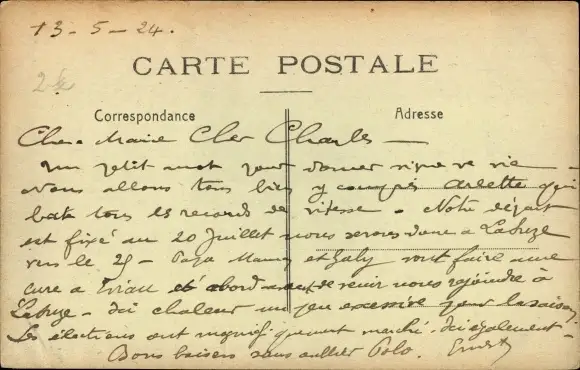 13 - 5 - 24.
CARTE POSTALE
Correspondance
Adresse
Chere Marie Cher Charles —
Un petit mot pour donner signe de vie —
Nous allons tous bien y compris Arlette qui
bat tous les records de vitesse - Notre départ
est fixé au 20 Juillet nous serons donc a
vers le 25 - Papa Maman et Gaby vont faire une
cure a Evian d'abord avant de venir nous rejoindre à
- Ici chaleur un peu excessive pour la saison
Les élections ont magnifiquement marché. Ici également -
Bons baisers sans oublier Polo. Ernest